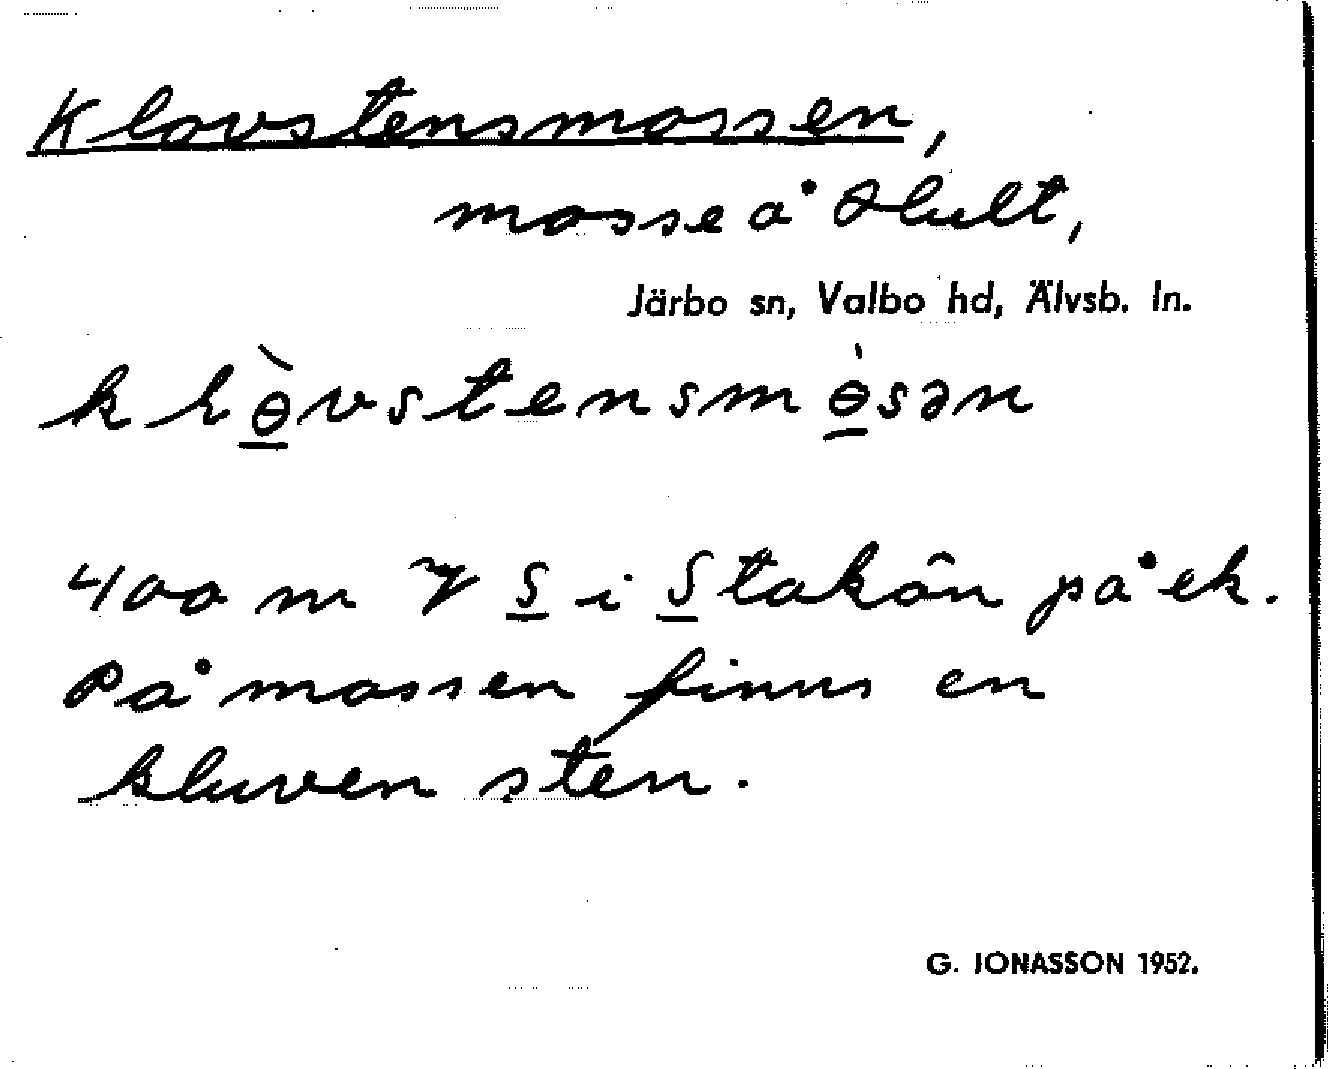 Klovstensmossen,
mosse å Hult,
Järbo sn, Valbo hd, Älvsb. ln.
400 m V S i Stakån på ek.
På mossen finns en
kluven sten.
G. JONASSON 1952.